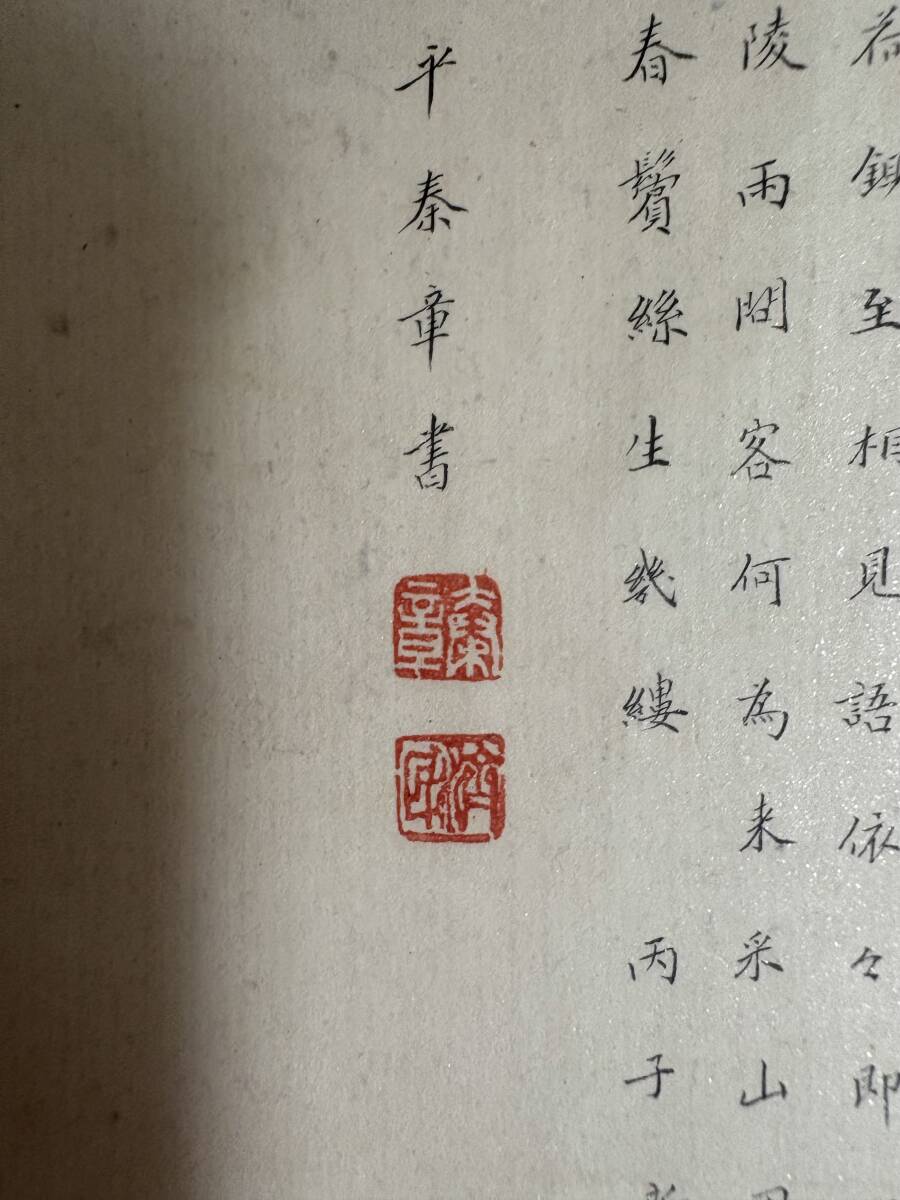 荷鉏至相見語依々即
陵雨問客何為来采山
春鬢絲生幾縷 丙子
平秦章書
秦章